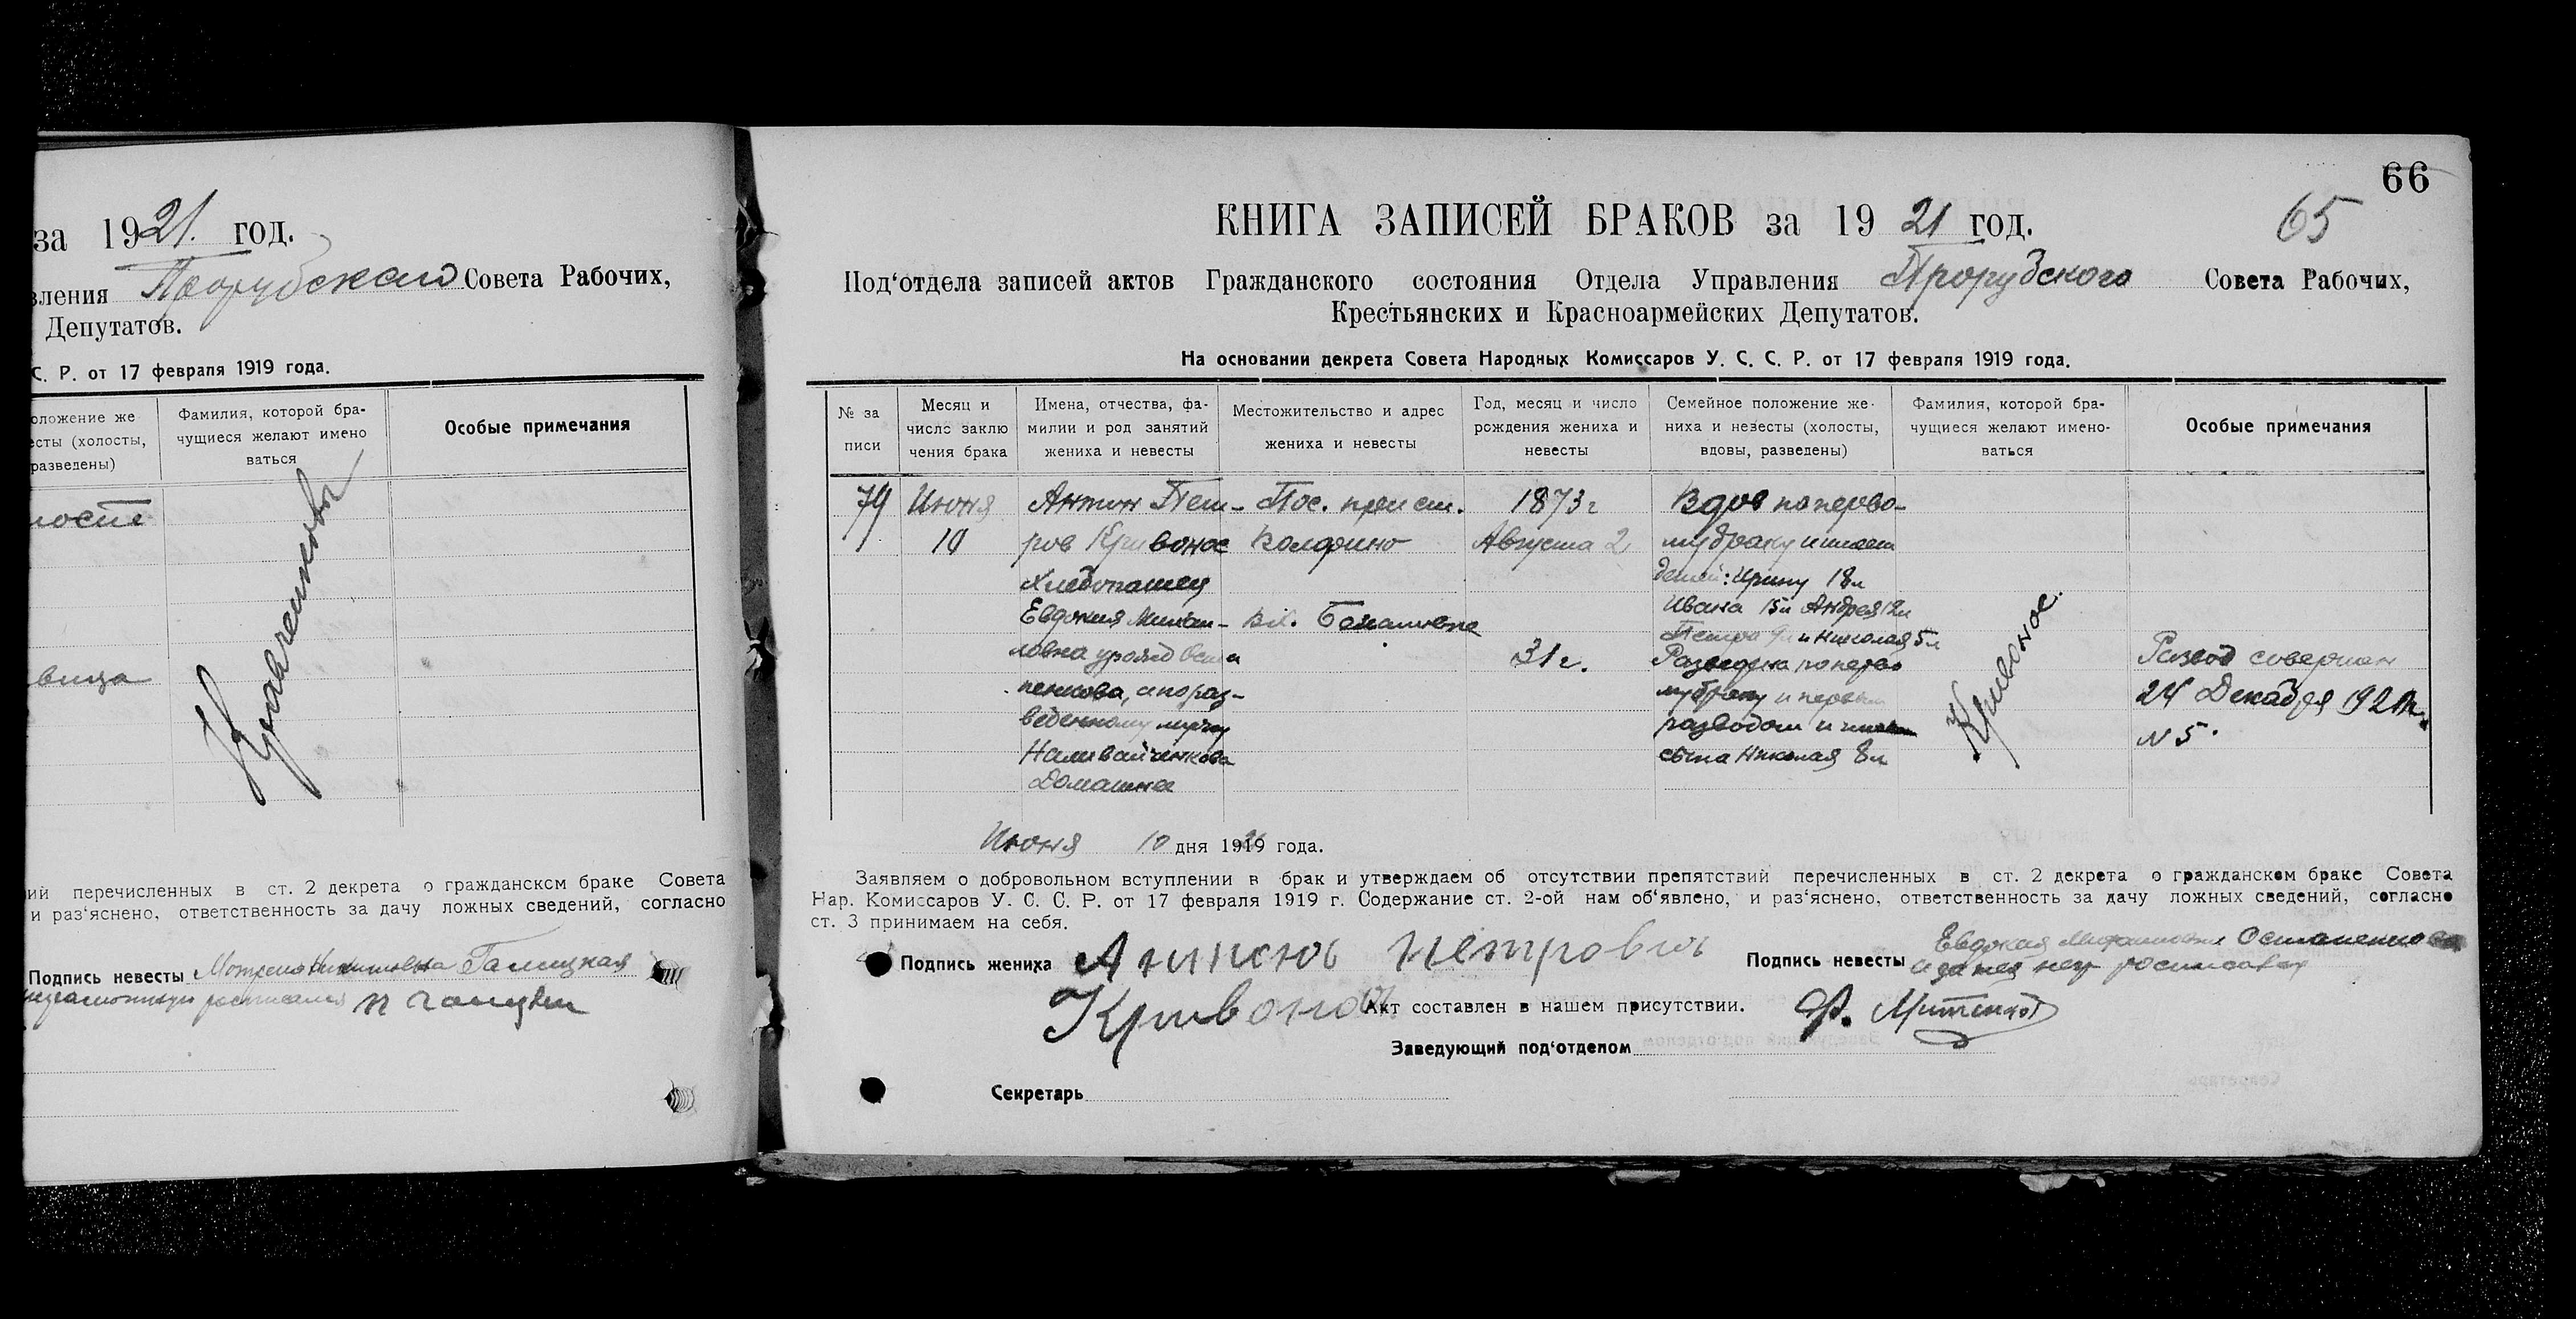 за 1921. год.
вления Прорубского Совета Рабочих,
Депутатов.
С. Р. от 17 февраля 1919 года.
оложение же
есты (холосты,
разведены)
Фамилия, которой бра-
чущиеся желают имено
ваться
Особые примечания
вица
ий перечисленных в ст. 2 декрета о гражданском браке Совета
и раз‘яснено, ответственность за дачу ложных сведений, согласно
Подпись невесты Галицкая
66
65
КНИГА ЗАПИСЕЙ БРАКОВ за 1921 год.
Под‘отдела записей актов Гражданского состояния Отдела Управления Прорубского Совета Рабочих,
Крестьянских и Красноармейских Депутатов.
На основании декрета Совета Народных Комиссаров У. С. С. Р. от 17 февраля 1919 года.
№ за
писи
Месяц и
число заклю
чения брака
Имена, отчества, фа-
милии и род занятий
жениха и невесты
Местожительство и адрес
жениха и невесты
Год, месяц и число
рождения жениха и
невесты
Семейное положение же-
ниха и невесты (холосты,
вдовы, разведены)
Фамилия, которой бра-
чущиеся желают имено-
ваться
Особые примечания
79
Июня
10
Антон Пет-
ров Кривонос
Хлебопашец
Евдокия Михай-
ловна урожд Оста
пенкова, а по раз-
веденному мужу
Наливайченкова
Домашнее
Пос. при ст.
Волфино
1873 г
Августа 2
31 г.
Вдов по перво-
му браку имеет
детей: Ирину 18 л
Ивана 15 л Андрея 12 л
Петра 9 л и Николая 5 л
Разведена по перво
му браку и первым
разводом и имеет
сына Николая 8 л
Кривонос.
Развод совершен
24 Декабря
N 5.
Июня 10 дня 1921 года.
Заявляем о добровольном вступлении в брак и утверждаем об отсутствии препятствий перечисленных в ст. 2 декрета о гражданском браке Совета
Нар. Комиссаров У. С. С. Р. от 17 февраля 1919 г. Содержание ст. 2-ой нам об‘явлено, и раз‘яснено, ответственность за дачу ложных сведений, согласно
ст. 3 принимаем на себя.
Подпись жениха
Подпись невесты Евдокия Михайловна Остапенкова
Акт составлен в нашем присутствии.
Заведующий под‘отделом
Секретарь